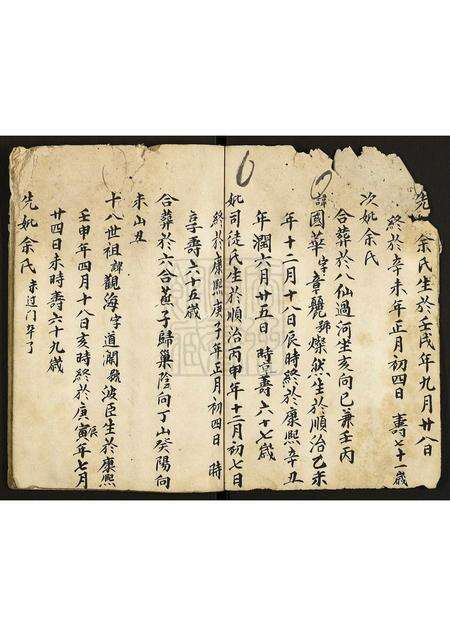 先妣余氏生於壬戌年九月廿八日
終於辛未年正月初四日 壽七十一歲
次妣余氏
合葬於八仙過河坐亥向巳兼壬丙
諱國華字章龒號燦然生於順治乙未
年十二月十八日辰時終於康熙辛丑
年潤六月廿五日 時享壽六十七歲
妣司徒氏生於順治丙申年十二月初七日
終於康熙庚子年正月初四日 時
享壽六十五歲
合葬於六合燕子歸巢陰向丁山癸陽向
未山丑
十八世祖諱觀海字道濶號波臣生於康熙
壬申年四月十八日亥時終於庚寅辰年七月
廿四日未時壽六十九歲
先妣余氏 未过门卒了